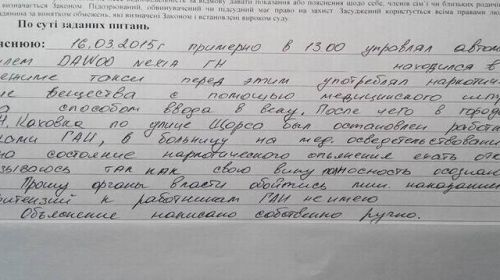 визначається Законом. Підозрюваний, обвинувачений чи підсудний має право на захист. Засуджений користується всіма правами
людини за винятком обмежень, які визначені Законом і встановлені вироком суду.
По суті заданих питань
яснюю: 16.03.2015г примерно в 13 00 управлял автом
лем DAWOO Nexia ГН находился в
режиме такси перед этим употреблял наркотич
ие вещества с помощью медицинского шпр
а способом ввода в вену. После чего в городе
Н. Каховка по улице Щорса был остановлен работн
ками ГАИ, в больницу на мед. осведетельствовани
но состояние наркотического опьянения ехать отк
азываюсь так как свою вину полносность осознаю
Прошу органы власти обойтись мин. наказание
притензий к работникам ГАИ не имею
Объяснение написано собственно ручно.